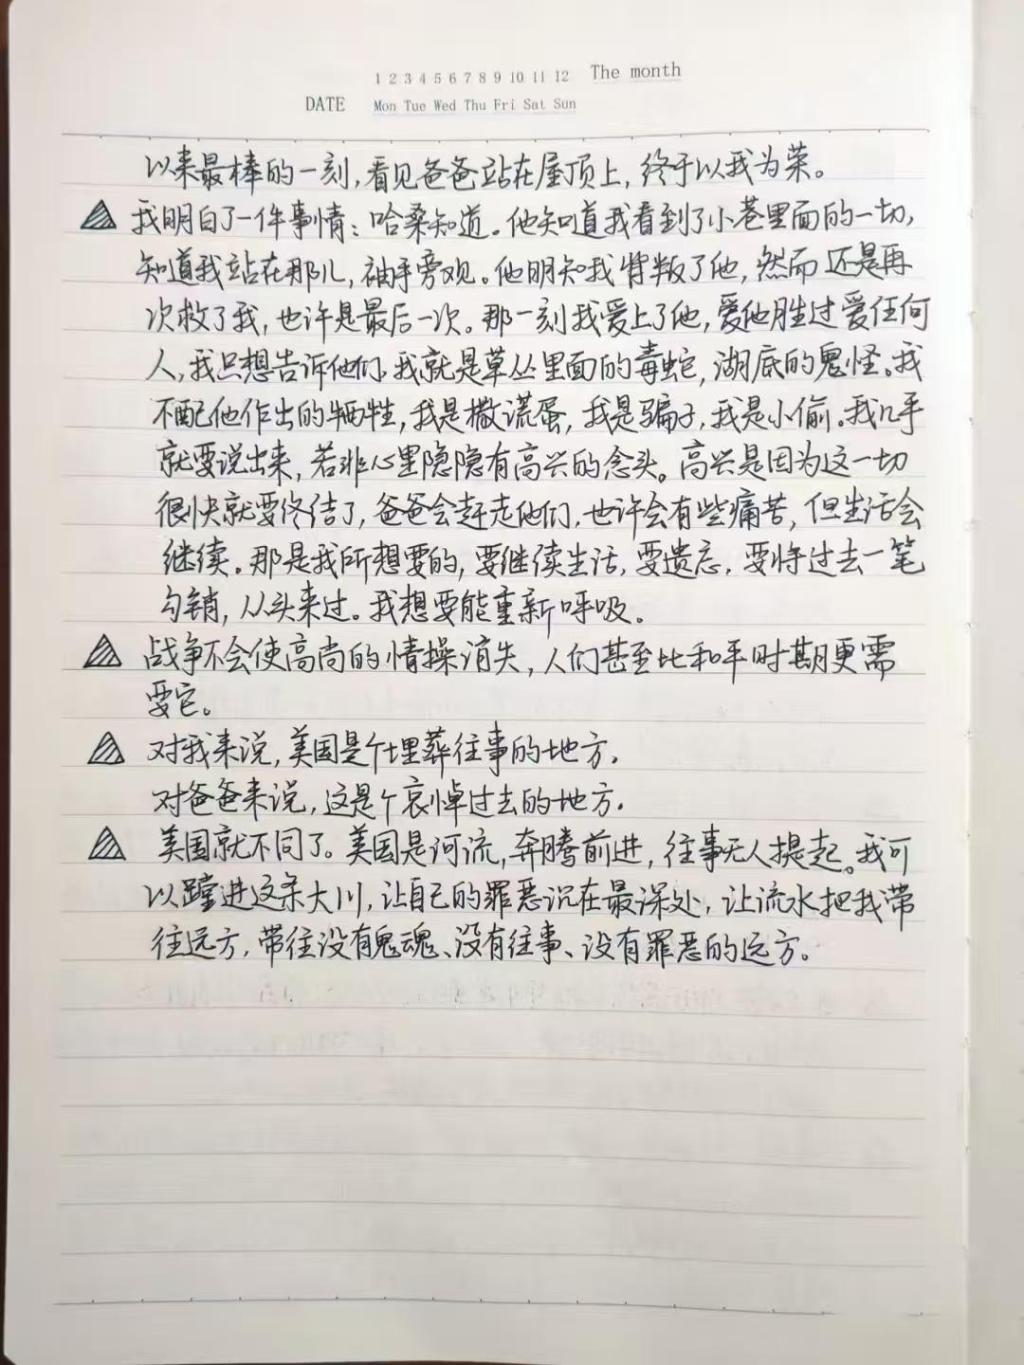 1 2 3 4 5 6 7 8 9 10 11 12 The month
DATE Mon Tue Wed Thu Fri Sat Sun
以来最棒的一刻,看见爸爸站在屋顶上,终于以我为荣。
我明白了一件事情:哈桑知道。他知道我看到了小巷里面的一切,
知道我站在那儿,袖手旁观。他明知我背叛了他,然而还是再
次救了我,也许是最后一次。那一刻我爱上了他,爱他胜过爱任何
人,我只想告诉他们,我就是草丛里面的毒蛇,湖底的鬼怪。我
不配他作出的牺牲,我是撒谎蛋,我是骗子,我是小偷。我几乎
就要说出来,若非心里隐隐有高兴的念头。高兴是因为这一切
很快就要终结了,爸爸会赶走他们,也许会有些痛苦,但生活会
继续。那是我所想要的,要继续生活,要遗忘,要将过去一笔
勾销,从头来过。我想要能重新呼吸。
战争不会使高尚的情操消失,人们甚至比和平时期更需
要它。
对我来说,美国是个埋葬往事的地方.
对爸爸来说,这是个哀悼过去的地方.
美国就不同了。美国是河流,奔腾前进,往事无人提起。我可
以蹚进这条大川,让自己的罪恶沉在最深处,让流水把我带
往远方,带往没有鬼魂、没有往事、没有罪恶的远方。